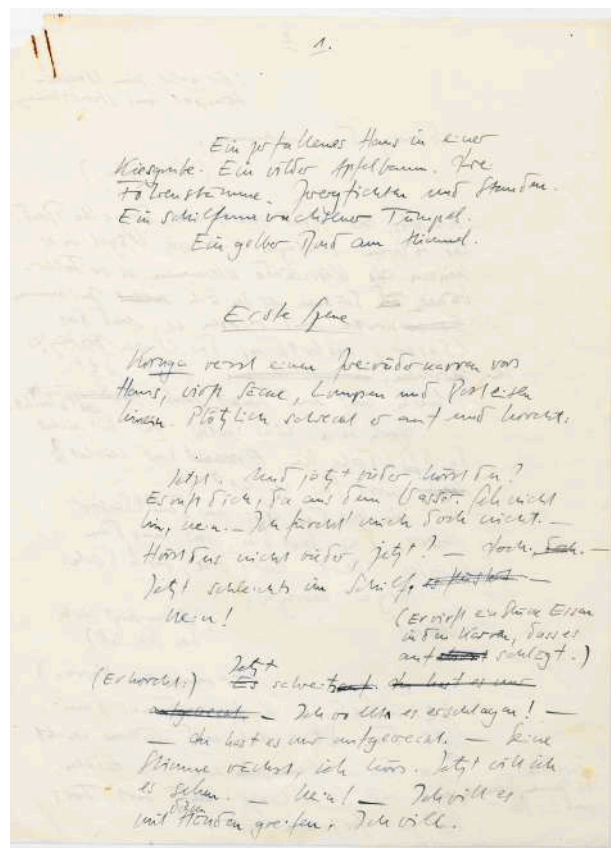 1.
Ein zerfallenes Haus in einer
Kiesgrube. Ein wilder Apfelbaum. Drei
Föhrenstämme. Zwergfichten und Stauden.
Ein schilfumwachsener Tümpel.
Ein gelber Mond am Himmel.
Erste Szene
Korruga einen Zweiräderkarren vors
Haus, wirft Säcke, Lumpen und Alteisen
hinein. Plötzlich schreckt er auf und horcht.
Jetzt. Und jetzt wieder, hörst du?
Es ruft dich, da aus dem Wasser. Geh nicht
hin, nein. – Ich fürcht' mich doch nicht. –
Hörst dus nicht wieder, jetzt? – doch. doch. –
Jetzt schleichts im Schilf, –
Nein!
(Er wirft ein Stück Eisen
in den Karren, dass es
auf schlägt.)
(Er horcht.) Jetzt
Es schreit. du hast es nur
aufgeweckt. – Ich wollte es erschlagen! –
– du hast es nur aufgeweckt. – Seine
Stimme wächst, ich hörs. Jetzt will ich
es sehen. – Nein! – Ich will es
mit den Händen greifen. Ich will.